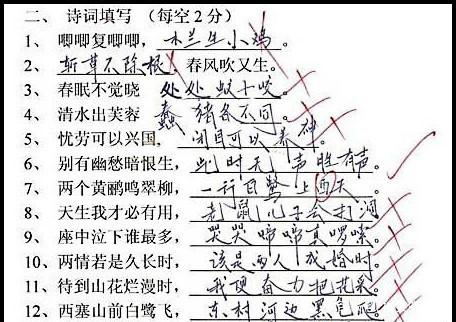 二、诗词填写 (每空2分)
1、唧唧复唧唧，木兰生小鸡。
2、斩草不除根，春风吹又生。
3、春眠不觉晓 处处蚊子咬
4、清水出芙蓉 蠢猪各不同。
5、忧劳可以兴国，闭目可以养神
6、别有幽愁暗恨生，此时无声胜有声
7、两个黄鹂鸣翠柳，一行白鹭上西天
8、天生我才必有用，老鼠儿子会打洞
9、座中泣下谁最多，哭哭啼啼真啰嗦。
10、两情若是久长时，该是两人成婚时。
11、待到山花烂漫时，我须奋力把花采。
12、西塞山前白鹭飞，东村河边黑龟爬。